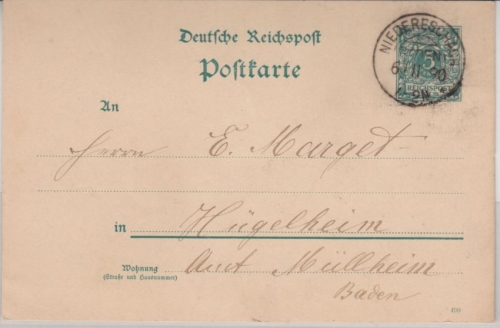 Deutsche Reichspost
Postkarte
NIEDERESCHACH
5
REICHSPOST
An
Herrn E. Marget
in Hügelheim
Wohnung
(Straße und Hausnummer)
Amt Müllheim
Baden